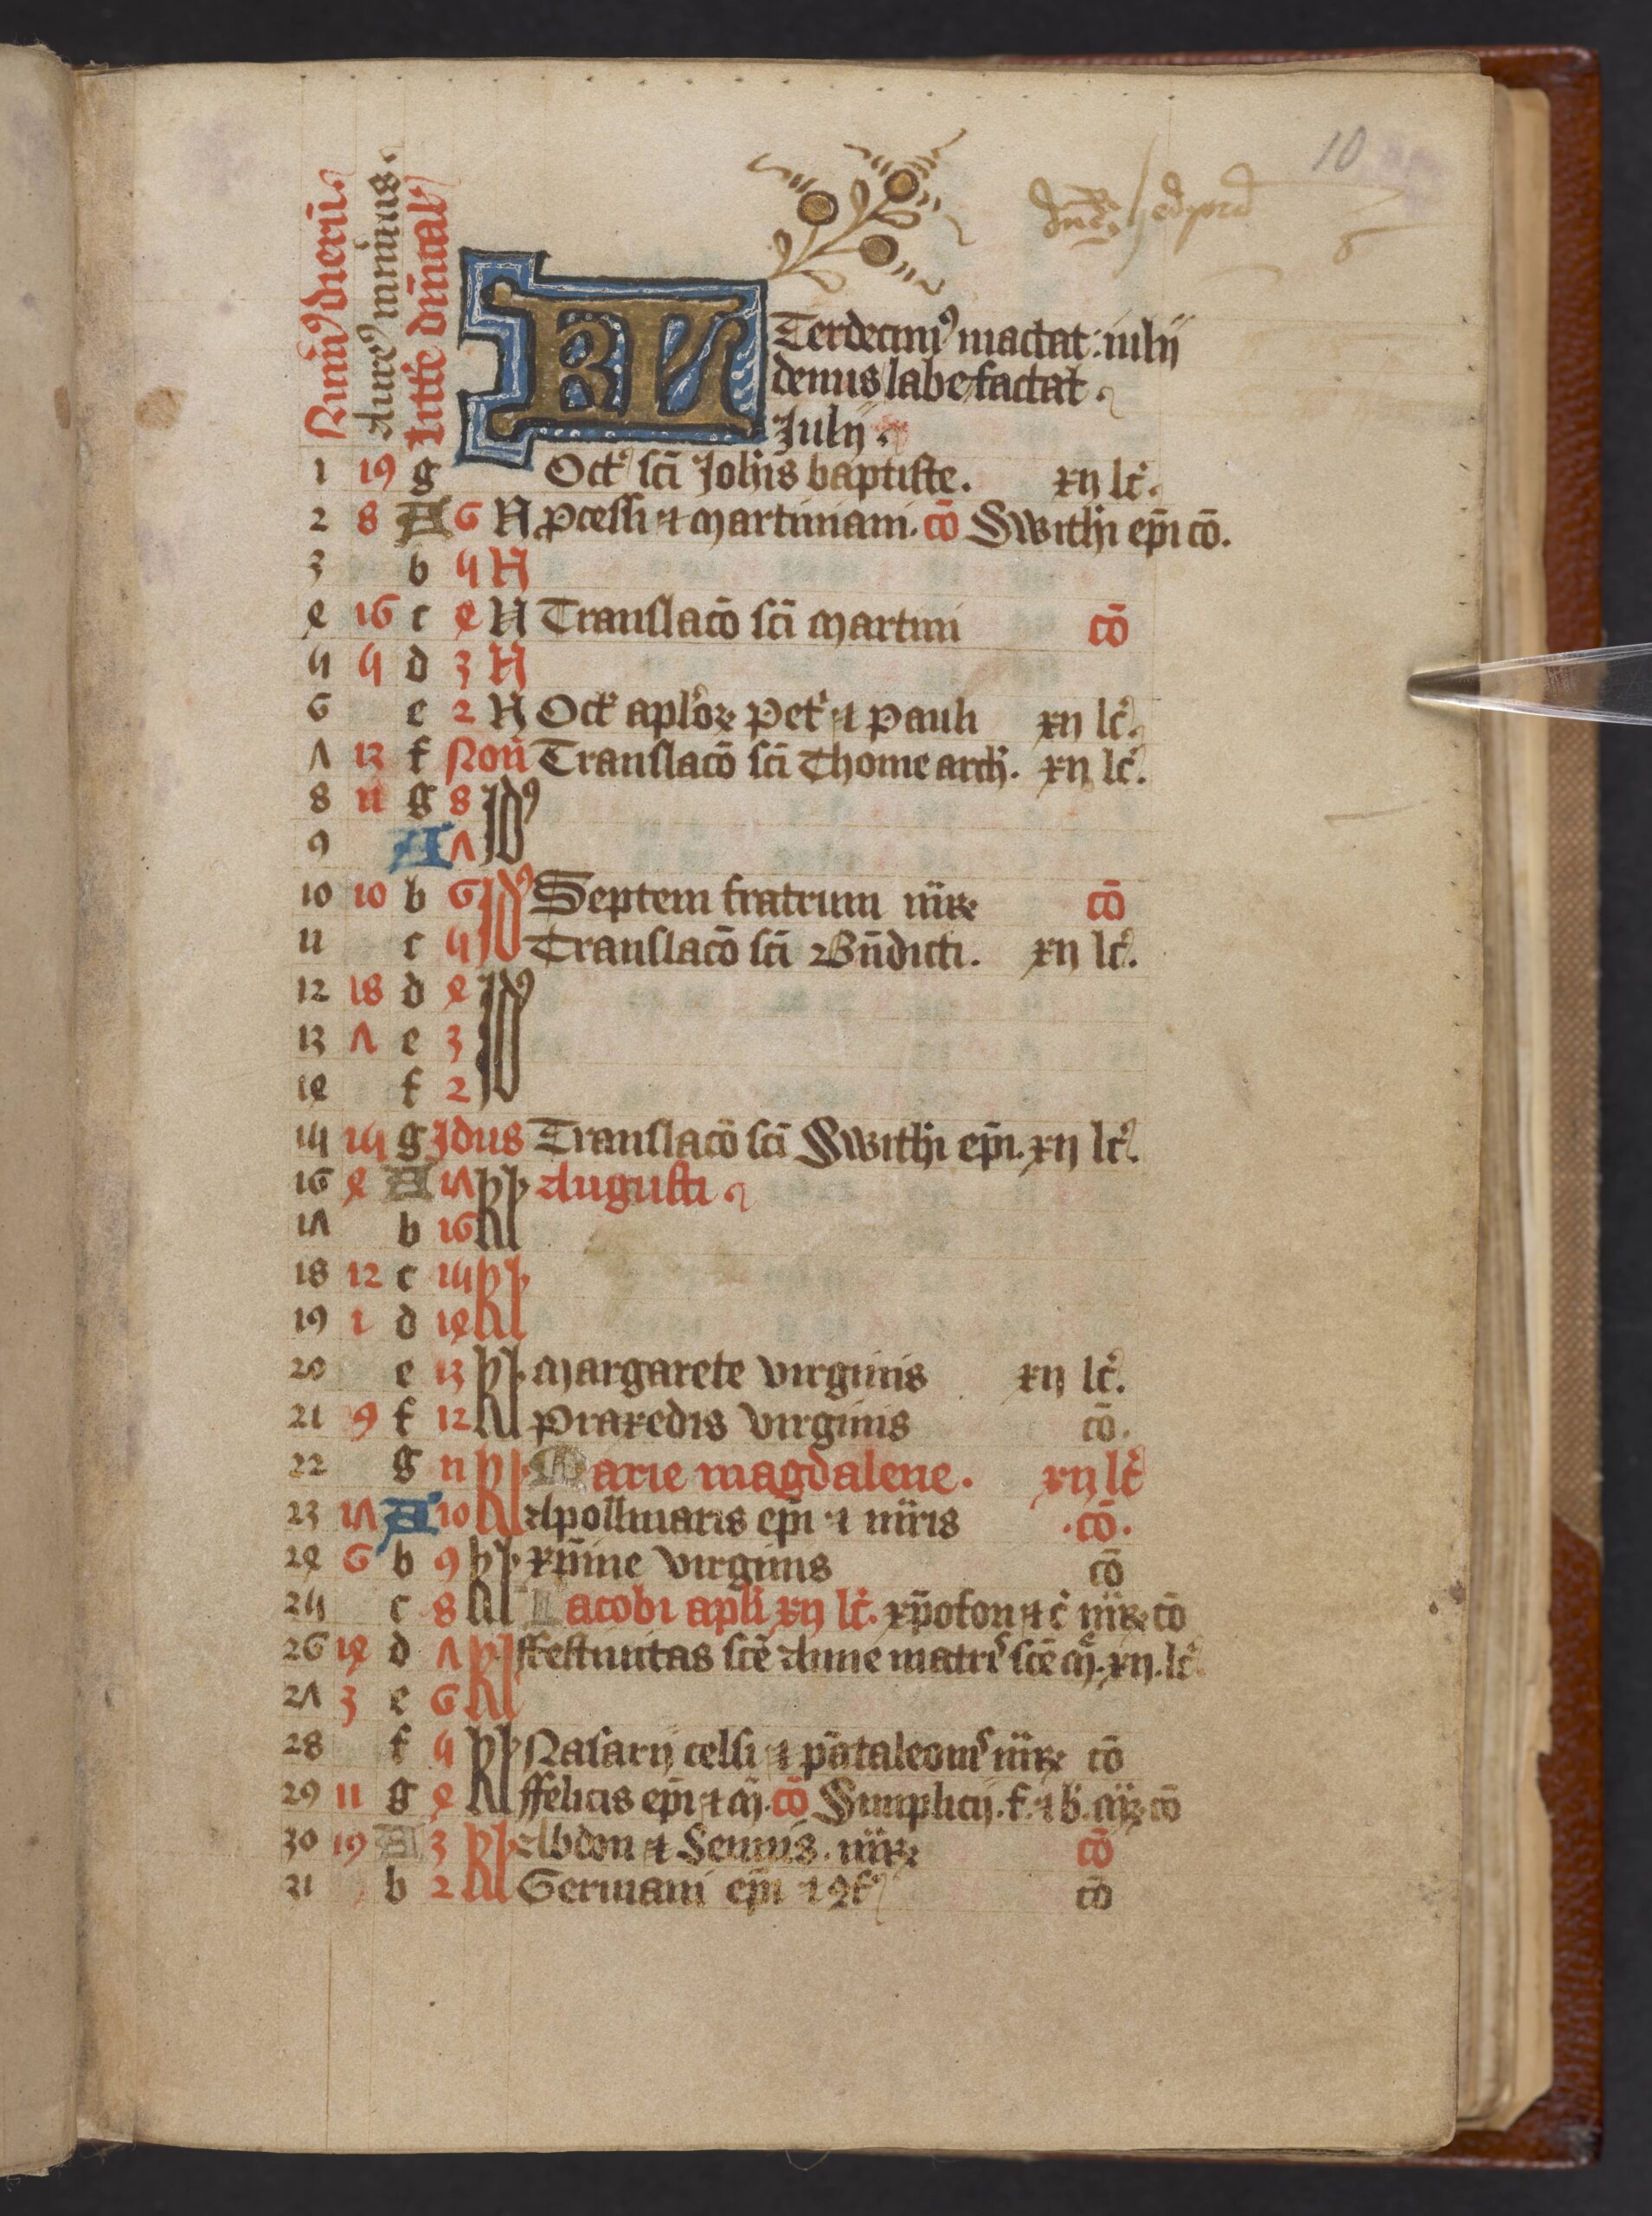 10
Numꝰ dierū
Aureꝰ numerus
Litt̄e dn̄ical
KL Terdecimꝰ mactat: iulij
denus labefactat
Julij.
1 19 g Oct' sc̄i Joh̄is baptiste. xij lc̄.
2 8 A 6 N ꝓcessi ⁊ Martiniani. cō Swithi ep̄i cō.
3 b 5 N
4 16 c 4 N Translacō sc̄i Martini cō
5 5 d 3 N
6 e 2 N Oct' apl'oꝝ Pet' ⁊ Pauli xij lc̄.
7 13 f Non̄ Translacō sc̄i Thome arch'. xij lc̄.
8 11 g 8 Idꝰ
9 A 7
10 10 b 6 Idꝰ Septem fratrum m̄rꝝ cō
11 c 5 Translacō sc̄i Bn̄dicti. xij lc̄.
12 18 d 4 Idꝰ
13 7 e 3
14 f 2
15 15 g Idus Translacō sc̄i Swithi ep̄i. xij lc̄.
16 4 A 17 kl Augusti
17 b 16 kl
18 12 c 15 kl
19 1 d 14 kl
20 e 13 kl Margarete virginis xij lc̄.
21 9 f 12 kl Praxedis virginis cō.
22 g 11 kl Marie magdalene. xij lc̄
23 17 A 10 kl Apollinaris ep̄i ⁊ m̄ris .cō.
24 6 b 9 kl xp̄ine virginis cō
25 c 8 kl Jacobi apl'i xij lc̄. xp̄ofori ⁊ c' m̄rꝝ cō
26 14 d 7 kl ffestiuitas sc̄e Anne matrꝭ sc̄e M. xij. lc̄
27 3 e 6 kl
28 f 5 kl Nasarij celsi ⁊ pātaleonꝭ m̄rꝝ cō
29 11 g 4 kl ffelicis ep̄i ⁊ M. cō Simplicij. f. ⁊ b. M̄rꝝ cō
30 19 A 3 kl Abdon ⁊ Sennis. m̄rꝝ cō
31 b 2 kl Germani ep̄i ⁊ ꝯf' cō